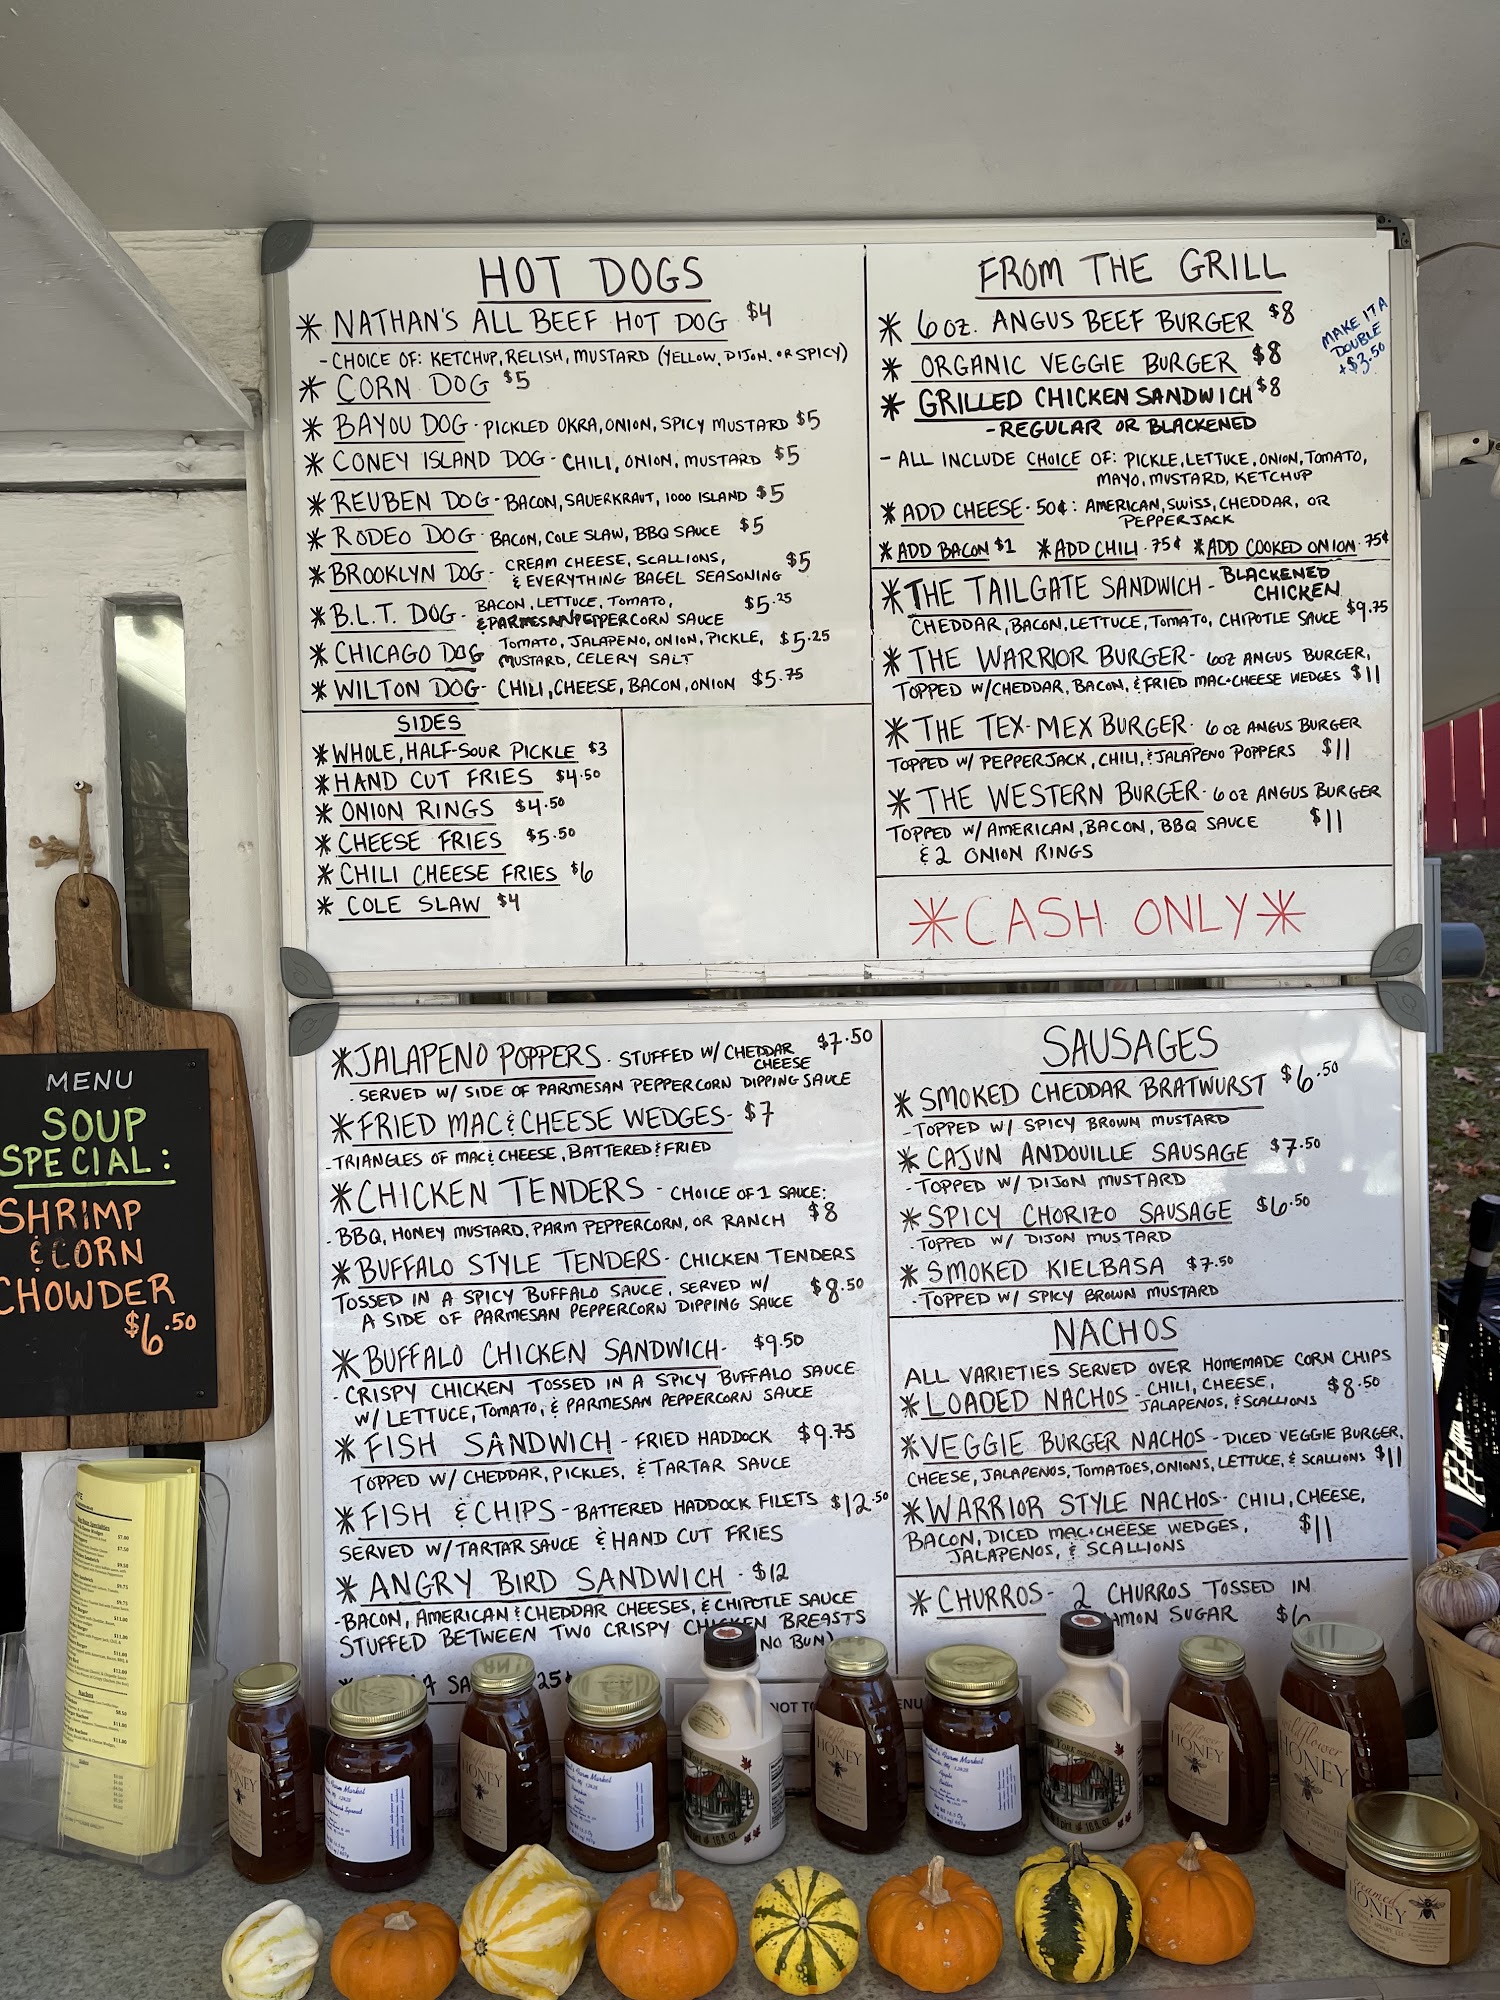 HOT DOGS
* NATHAN'S ALL BEEF HOT DOG $4
- CHOICE OF: KETCHUP, RELISH, MUSTARD (YELLOW, DIJON, OR SPICY)
* CORN DOG $5
* BAYOU DOG - PICKLED OKRA, ONION, SPICY MUSTARD $5
* CONEY ISLAND DOG - CHILI, ONION, MUSTARD $5
* REUBEN DOG - BACON, SAUERKRAUT, 1000 ISLAND $5
* RODEO DOG - BACON, COLE SLAW, BBQ SAUCE $5
* BROOKLYN DOG - CREAM CHEESE, SCALLIONS,
& EVERYTHING BAGEL SEASONING $5
* B.L.T. DOG - BACON, LETTUCE, TOMATO,
& PARMESAN PEPPERCORN SAUCE $5.25
* CHICAGO DOG TOMATO, JALAPENO, ONION, PICKLE,
MUSTARD, CELERY SALT $5.25
* WILTON DOG - CHILI, CHEESE, BACON, ONION $5.75
SIDES
* WHOLE, HALF-SOUR PICKLE $3
* HAND CUT FRIES $4.50
* ONION RINGS $4.50
* CHEESE FRIES $5.50
* CHILI CHEESE FRIES $6
* COLE SLAW $4
FROM THE GRILL
* 6 OZ. ANGUS BEEF BURGER $8
* ORGANIC VEGGIE BURGER $8
* GRILLED CHICKEN SANDWICH $8
- REGULAR OR BLACKENED
MAKE IT A
DOUBLE
+$3.50
- ALL INCLUDE CHOICE OF: PICKLE, LETTUCE, ONION, TOMATO,
MAYO, MUSTARD, KETCHUP
* ADD CHEESE - 50¢: AMERICAN, SWISS, CHEDDAR, OR
PEPPERJACK
* ADD BACON $1 * ADD CHILI - 75¢ * ADD COOKED ONION - 75¢
* THE TAILGATE SANDWICH - BLACKENED
CHICKEN
CHEDDAR, BACON, LETTUCE, TOMATO, CHIPOTLE SAUCE $9.75
* THE WARRIOR BURGER - 6OZ ANGUS BURGER,
TOPPED W/CHEDDAR, BACON, & FRIED MAC+CHEESE WEDGES $11
* THE TEX-MEX BURGER - 6 OZ ANGUS BURGER
TOPPED W/ PEPPERJACK, CHILI, & JALAPENO POPPERS $11
* THE WESTERN BURGER - 6 OZ ANGUS BURGER
TOPPED W/ AMERICAN, BACON, BBQ SAUCE $11
& 2 ONION RINGS
*CASH ONLY*
* JALAPENO POPPERS - STUFFED W/ CHEDDAR
CHEESE $7.50
- SERVED W/ SIDE OF PARMESAN PEPPERCORN DIPPING SAUCE
* FRIED MAC & CHEESE WEDGES - $7
- TRIANGLES OF MAC & CHEESE, BATTERED & FRIED
* CHICKEN TENDERS - CHOICE OF 1 SAUCE:
- BBQ, HONEY MUSTARD, PARM PEPPERCORN, OR RANCH $8
* BUFFALO STYLE TENDERS - CHICKEN TENDERS
TOSSED IN A SPICY BUFFALO SAUCE, SERVED W/
A SIDE OF PARMESAN PEPPERCORN DIPPING SAUCE $8.50
* BUFFALO CHICKEN SANDWICH - $9.50
- CRISPY CHICKEN TOSSED IN A SPICY BUFFALO SAUCE
W/ LETTUCE, TOMATO, & PARMESAN PEPPERCORN SAUCE
* FISH SANDWICH - FRIED HADDOCK $9.75
TOPPED W/ CHEDDAR, PICKLES, & TARTAR SAUCE
* FISH & CHIPS - BATTERED HADDOCK FILETS $12.50
SERVED W/ TARTAR SAUCE & HAND CUT FRIES
* ANGRY BIRD SANDWICH - $12
- BACON, AMERICAN & CHEDDAR CHEESES, & CHIPOTLE SAUCE
STUFFED BETWEEN TWO CRISPY CHICKEN BREASTS
NO BUN)
SAUSAGES
* SMOKED CHEDDAR BRATWURST $6.50
- TOPPED W/ SPICY BROWN MUSTARD
* CAJUN ANDOUILLE SAUSAGE $7.50
- TOPPED W/ DIJON MUSTARD
* SPICY CHORIZO SAUSAGE $6.50
- TOPPED W/ DIJON MUSTARD
* SMOKED KIELBASA $7.50
- TOPPED W/ SPICY BROWN MUSTARD
NACHOS
ALL VARIETIES SERVED OVER HOMEMADE CORN CHIPS
* LOADED NACHOS - CHILI, CHEESE,
JALAPENOS, & SCALLIONS $8.50
* VEGGIE BURGER NACHOS - DICED VEGGIE BURGER,
CHEESE, JALAPENOS, TOMATOES, ONIONS, LETTUCE, & SCALLIONS $11
* WARRIOR STYLE NACHOS - CHILI, CHEESE,
BACON, DICED MAC+CHEESE WEDGES, $11
JALAPENOS, & SCALLIONS
* CHURROS - 2 CHURROS TOSSED IN
SUGAR $6
MENU
SOUP
SPECIAL:
SHRIMP
& CORN
CHOWDER
$6.50
HONEY
Farm Market
Wildflower
HONEY
Farm Market
Apple
Butter
Wildflower
HONEY
Creamed
HONEY